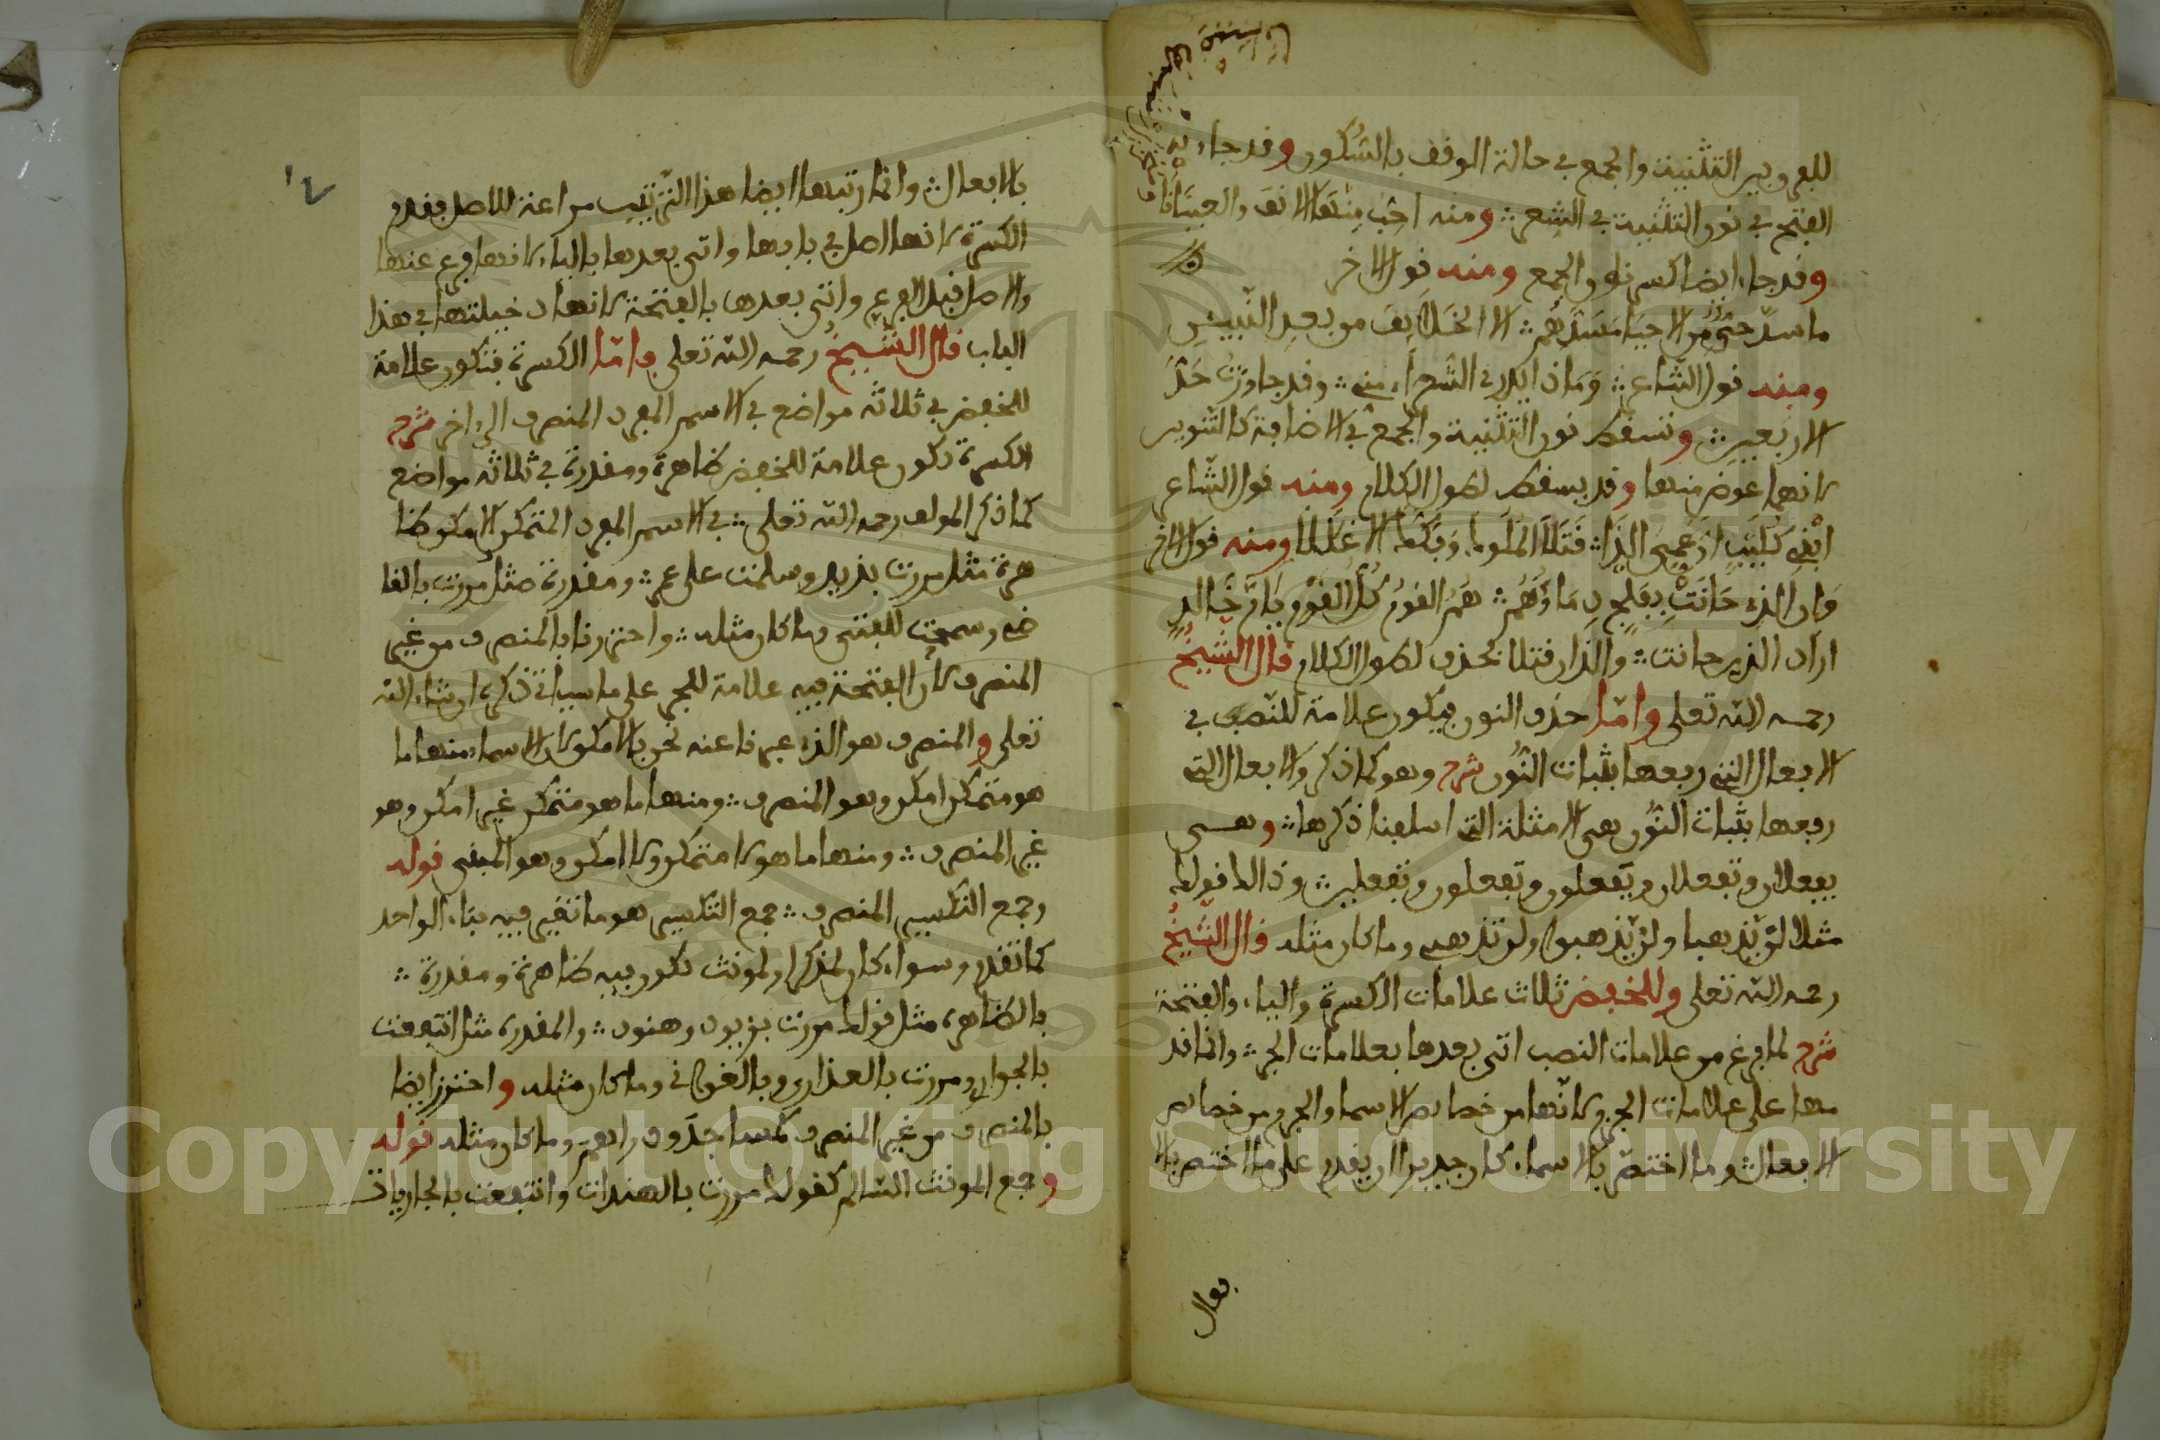 للفرق بين التثنية والجمع في حالة الوقف بالسكون وقد جاء
الفتح في نون التثنية في الشعر ومنه احب منها الانف والعينانا
وقد جاء ايضا كسر نون الجمع ومنه قول الاخر
ما سد حي ولا ميت مسدهم الا الخلايف من بعد النبيين
ومنه قول الشاعر وماذا يدري الشعراء مني وقد جاوزت حد
الاربعين وتسقط نون التثنية والجمع في الاضافة كالتنوين
لانهما عوض منها وقد يسقط لطول الكلام ومنه قول الشاعر
ابني كليب ان عمي الذا قتلا الملوك وفككا الاغلالا ومنه قول الاخر
وان الذي حانت بفلج دماؤهم هم القوم كل القوم يا ام خالد
اراد الذين حانت والذان قتلا فحذف لطول الكلام قال الشيخ
رحمه الله تعلى واما حذف النون فيكون علامة للنصب في
الافعال التي رفعها بثبات النون شرح وهو كما ذكر والافعال التي
رفعها بثبات النون هي الامثلة التي اسلفنا ذكرها وهي
يفعلان وتفعلان ويفعلون وتفعلون وتفعلين وذالك قولك
مثلا لن يذهبا ولن يذهبوا ولن تذهبي وما كان مثله قال الشيخ
رحمه الله تعلى وللخفض ثلاث علامات الكسرة والياء والفتحة
شرح لما فرغ من علامات النصب اتى بعدها بعلامات الجر وانما قد
مها على علامات الجزم لانها من خصايص الاسما والجزم من خصايص
الافعال وما اختص بالاسماء كان جديرا ان يقدم على ما اختص بالا
فعال
١٤
بالافعال وانما رتبها ايضا هذا الترتيب مراعة للاصل فقدم
الكسرة لانها اصل في بابها واتى بعدها بالياء لانها فرع عنها
والاصل قبل الفرع واتى بعدها بالفتحة لانها دخيلتها في هذا
الباب قال الشيخ رحمه الله تعلى فاما الكسرة فتكون علامة
للخفض في ثلاثة مواضع في الاسم المفرد المنصرف الى اخره شرح
الكسرة تكون علامة للخفض ظاهرة ومقدرة في ثلاثة مواضع
كما ذكر المولف رحمه الله تعلى في الاسم المفرد المتمكن الامكن ظا
هرة مثل مررت بزيد وسلمت على عمر ومقدرة مثل مررت بالقا
ضي وسمعت للفتى وما كان مثله واحترزنا بالمنصرف من غير
المنصرف لان الفتحة فيه علامة للجر على ما سياتي ذكره ان شاء الله
تعلى والمنصرف هو الذي عبرنا عنه نحن بالامكن لان الاسماء منها ما
هو متمكن امكن وهو المنصرف ومنها ما هو متمكن غير امكن وهو
غير المنصرف ومنها ما هو لا متمكن ولا امكن وهو المبنى قوله
وجمع التكسير المنصرف جمع التكسير هو ما تغير فيه بناء الواحد
كما تقدم وسواء كان لمذكر او لمونث تكون فيه ظاهرة ومقدرة
بالظاهرة مثل قولك مررت بزيود وهنود والمقدرة مثل انتفعت
بالجواري ومررت بالعذارى وبالغواني وما كان مثله واحترز ايضا
بالمنصرف من غير المنصرف كمساجد ودراهم وما كان مثله قوله
وجمع المونث السالم كقولك مررت بالهندات وانتفعت بالجاريات
Copyright © King Saud University